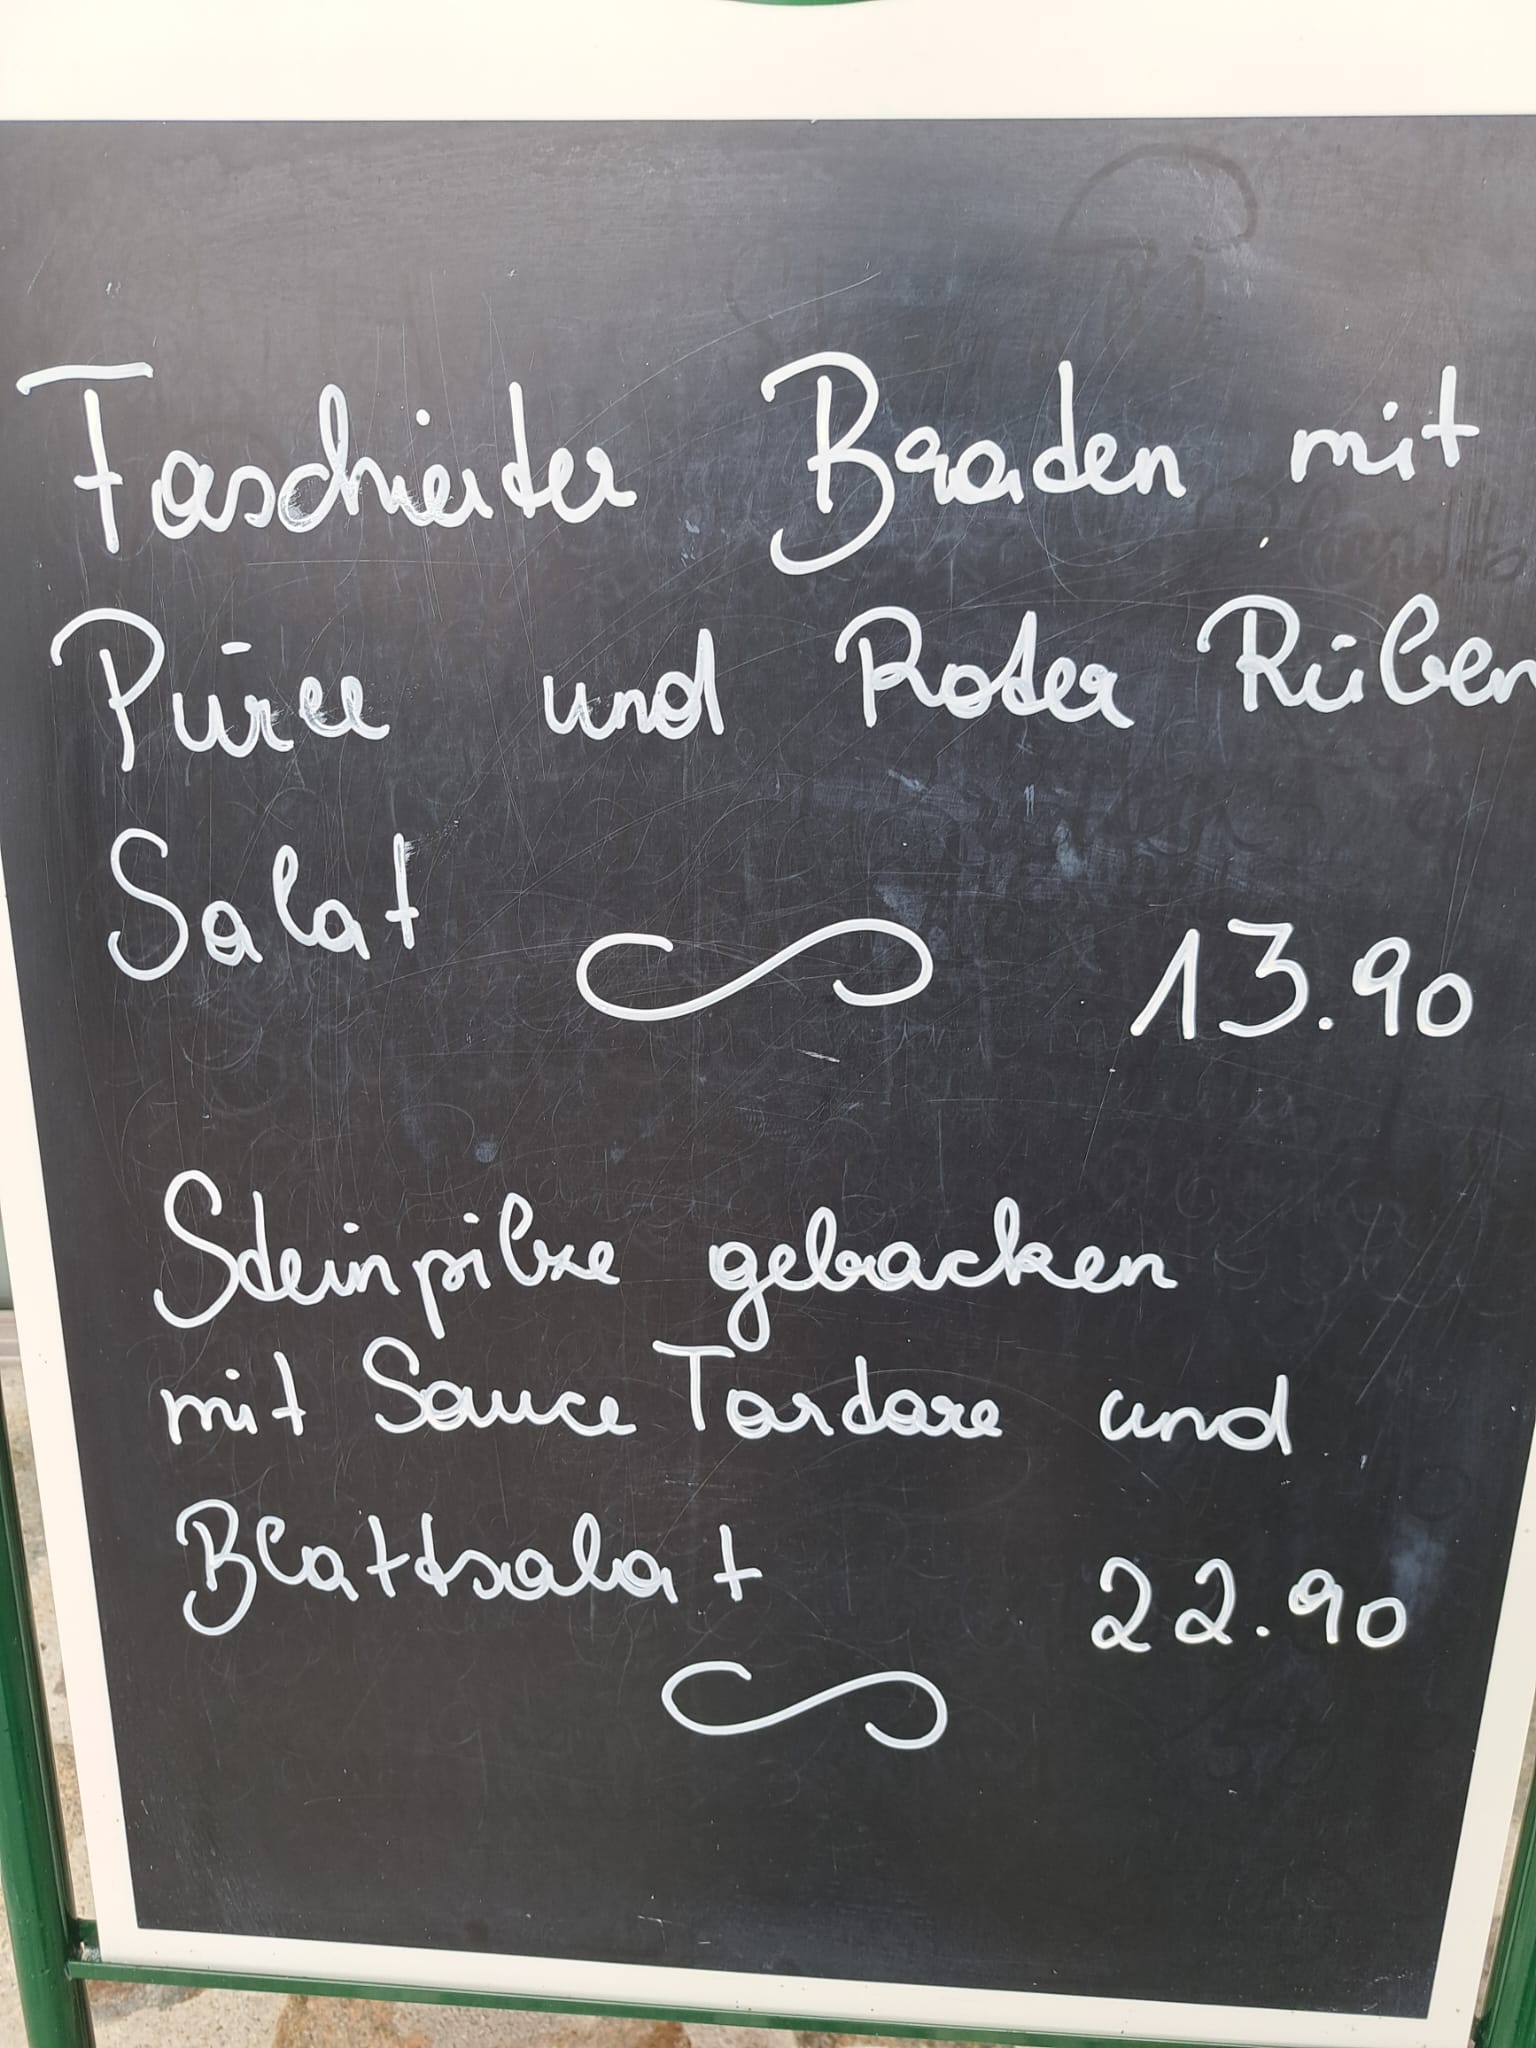 Faschierter Braten mit
Püree und Roter Rüben
Salat 13.90
Steinpilze gebacken
mit Sauce Tartare und
Blattsalat 22.90